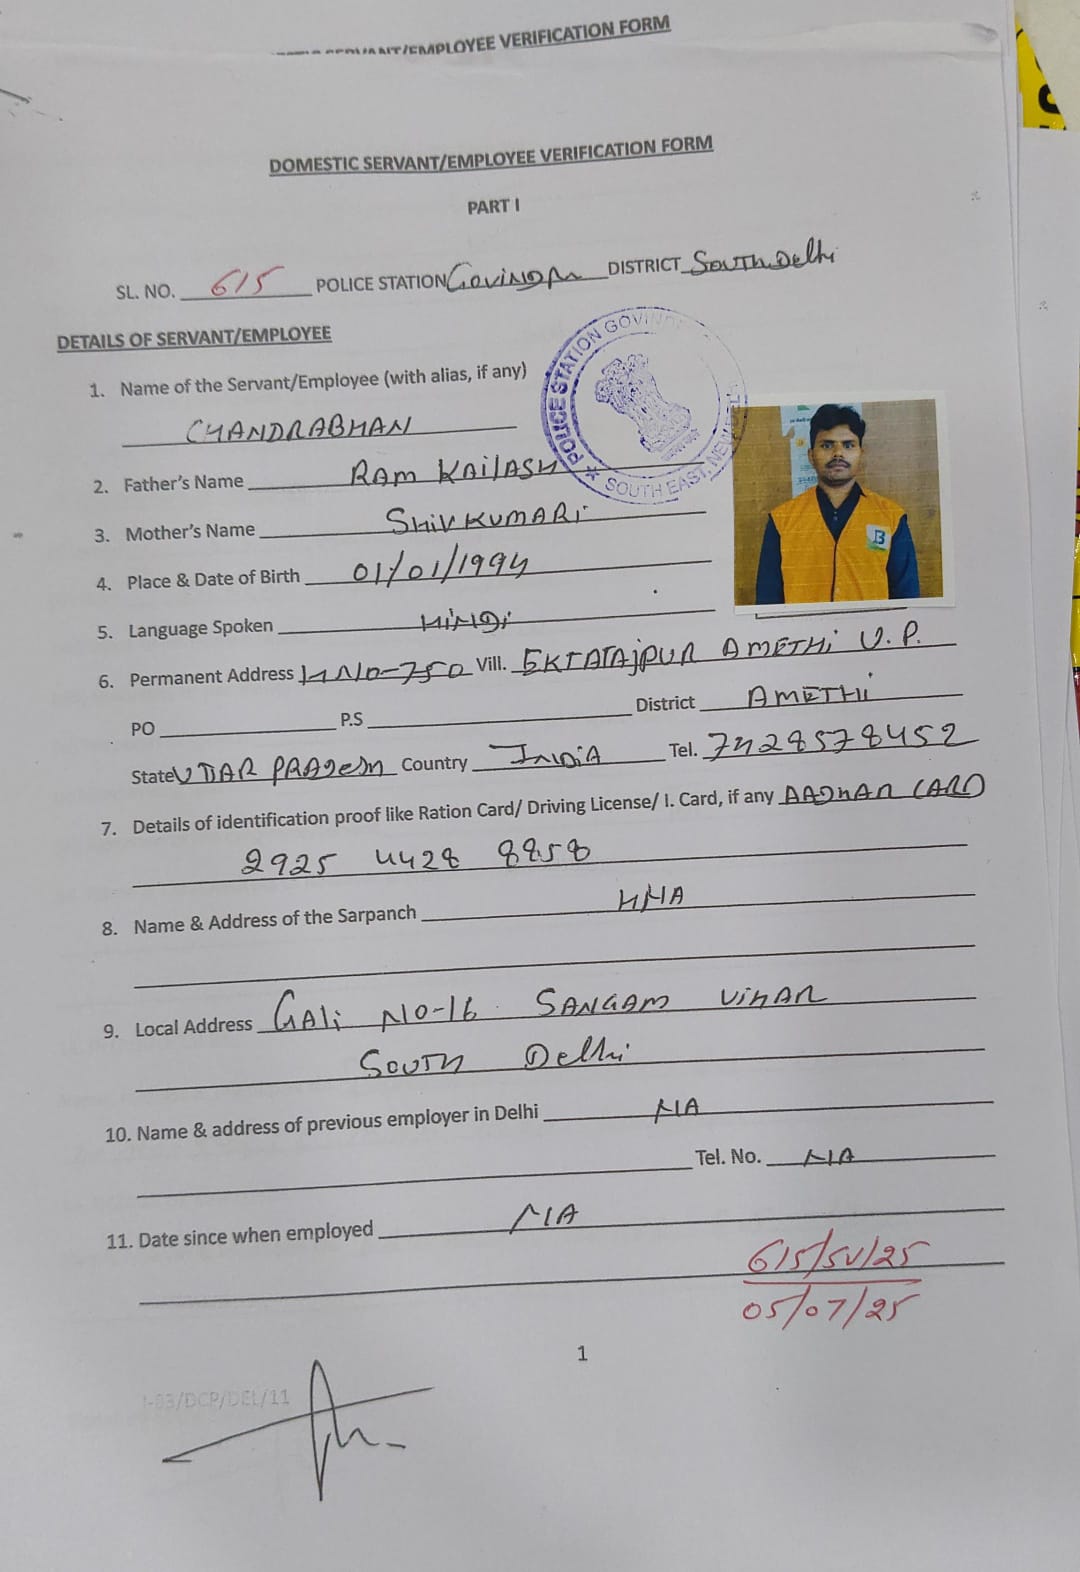 SERVANT/EMPLOYEE VERIFICATION FORM
DOMESTIC SERVANT/EMPLOYEE VERIFICATION FORM
PART I
SL. NO. 615 POLICE STATION DISTRICT South Delhi
DETAILS OF SERVANT/EMPLOYEE
1. Name of the Servant/Employee (with alias, if any)
CHANDRABHAN
2. Father's Name RAM KAILASH
3. Mother's Name SHIV KUMARI
4. Place & Date of Birth 01/01/1994
5. Language Spoken HINDI
6. Permanent Address H NO-750 Vill. EKTATAJPUR AMETHI U.P.
PO P.S District AMETHI
State UTTAR PRADESH Country INDIA Tel. 7428578452
7. Details of identification proof like Ration Card/ Driving License/ I. Card, if any AADHAR CARD
2925 4428 8858
8. Name & Address of the Sarpanch
9. Local Address GALI NO-16 SANGAM VIHAR
SOUTH Delhi
10. Name & address of previous employer in Delhi NA
Tel. No. NA
11. Date since when employed NA
615/SV/25
05/07/25
1
I-83/DCP/DEL/11
POLICE STATION GOVIND
SOUTH EAST, NEW DEL
B